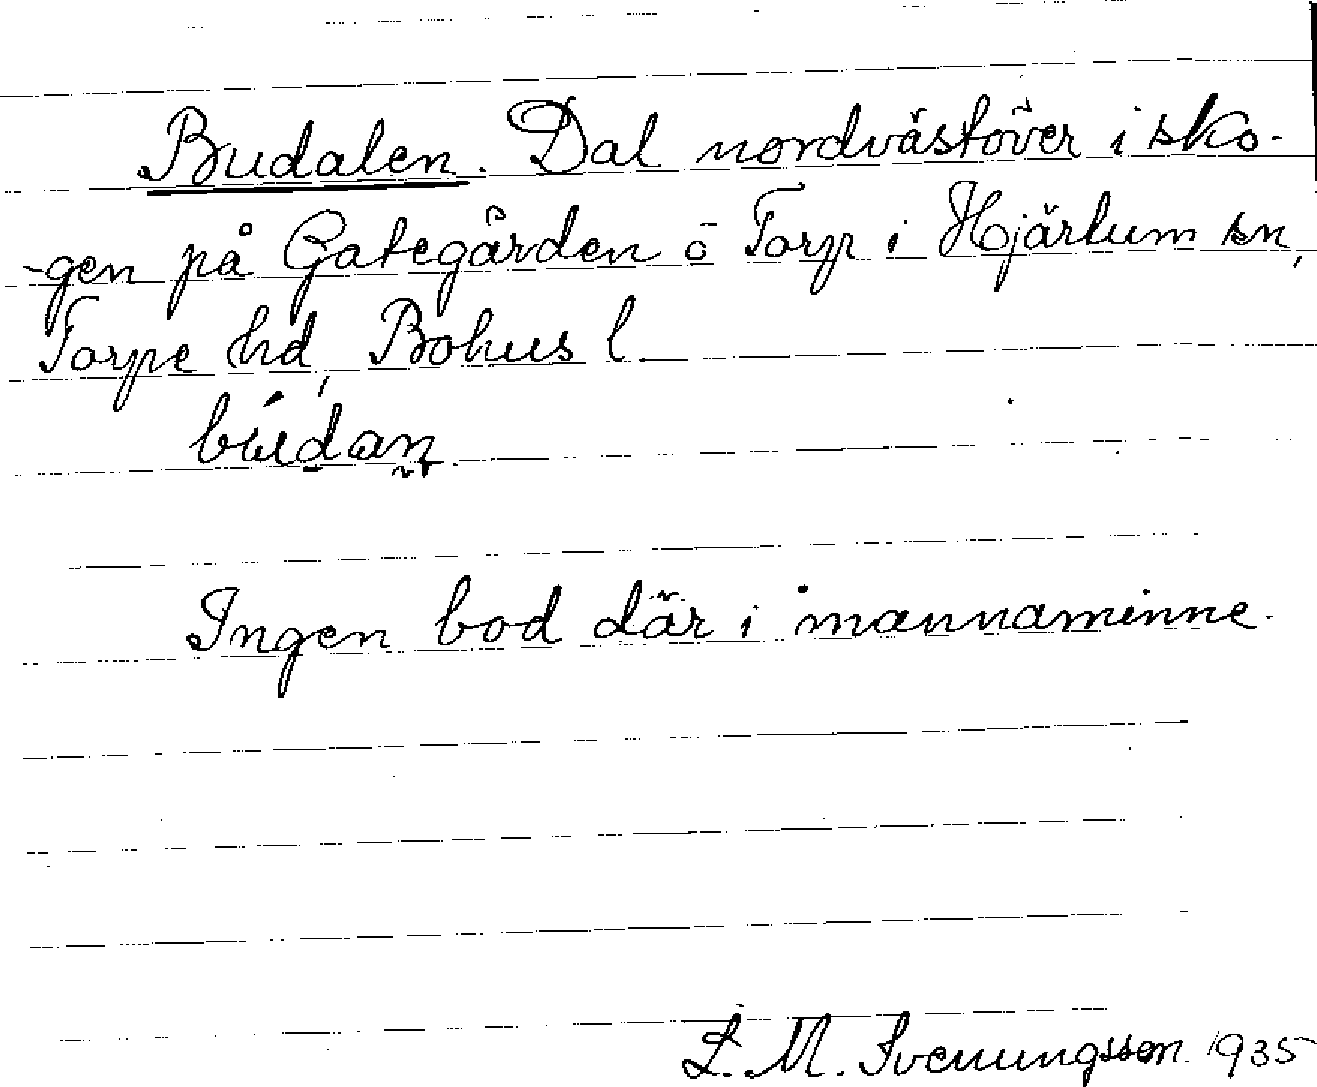 Budalen. Dal nordvästöver i sko-
-gen på Gategården ö Torp i Hjärtum sn,
Torpe hd, Bohus l
búdan
Ingen bod där i mannaminne.
L. M. Svenungsson 1935